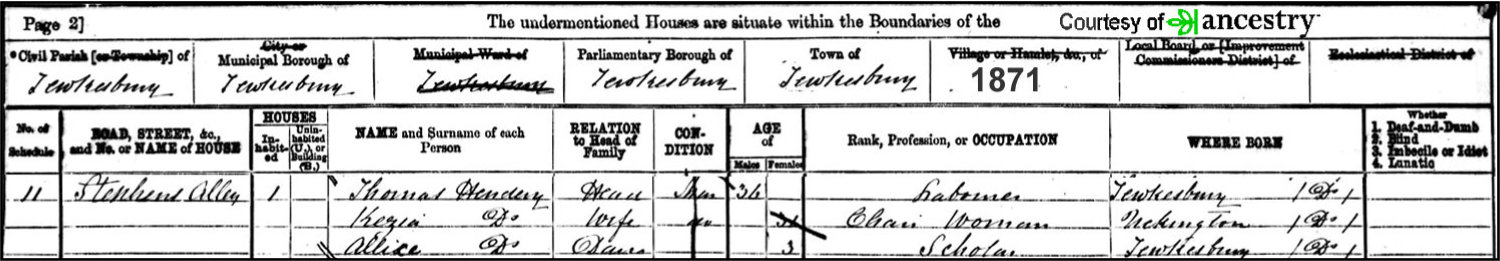 Page 2] The undermentioned Houses are situate within the Boundaries of the Courtesy of ancestry
*Civil Parish [or Township] of City or Municipal Borough of Municipal Ward of Parliamentary Borough of Town of Village or Hamlet, &c., of Local Board, or [Improvement Commissioners District] of Ecclesiastical District of
Tewkesbury Tewkesbury Tewkesbury Tewkesbury Tewkesbury 1871
No. of Schedule ROAD, STREET, &c., and No. or NAME of HOUSE HOUSES Inhabited Uninhabited (U.), or Building (B.) NAME and Surname of each Person RELATION to Head of Family CONDITION AGE of Males Females Rank, Profession, or OCCUPATION WHERE BORN Whether
1. Deaf-and-Dumb
2. Blind
3. Imbecile or Idiot
4. Lunatic
11 Stephens Alley 1 Thomas Hendery Head Mar 36 Labourer Tewkesbury Do
Kezia Do Wife Chair Woman Uckington Do
Allice Do Daur 3 Scholar Tewkesbury Do